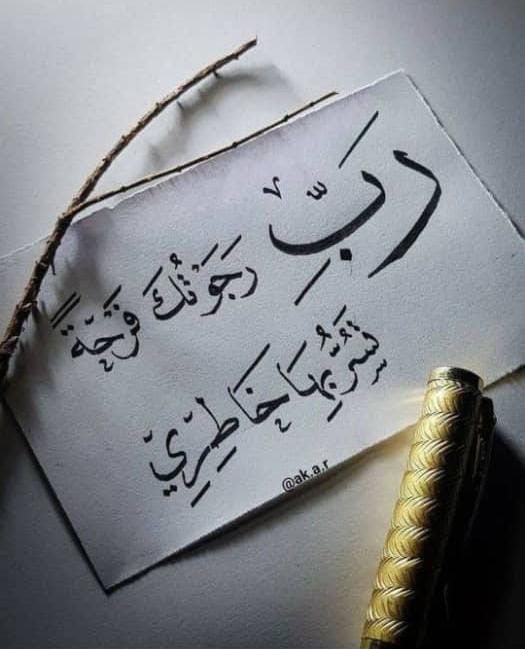 رَبِّ رَجَوْتُكَ فَرْحَةً
تَسُرُّ بِهَا خَاطِرِي
@ak.a.r